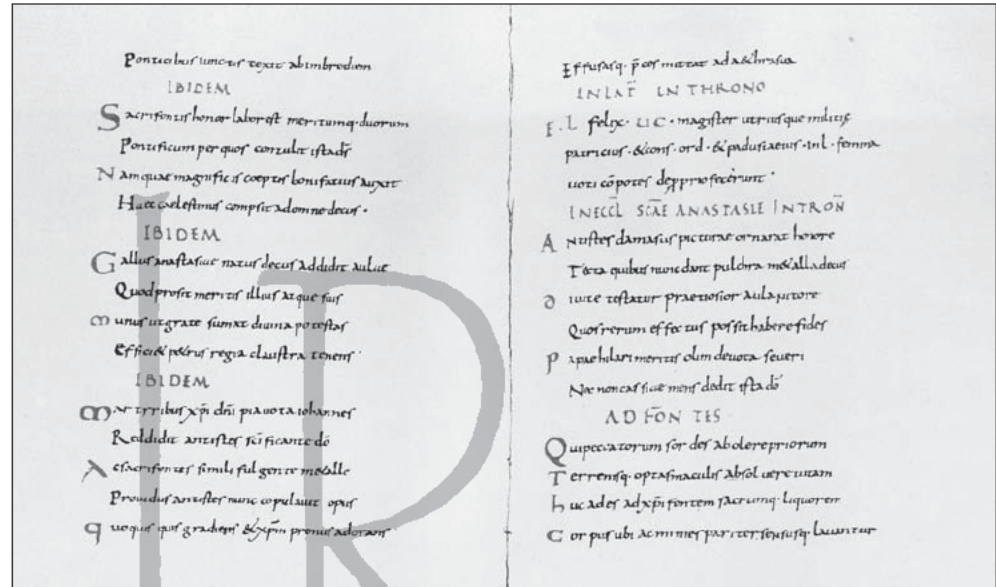 Ponticibus iunctis texit ab imbre diem
IBIDEM
Sacri fontis honor labor est meritumq· duorum
Pontificum per quos contulit ista dš
Namquae magnificis coeptis bonifatius auxit
Haec caelestinus compsit ad omne decus ·
IBIDEM
Gallus anastasiue natus decus addidit aulae
Quod prosit meritis illius atque suis
Munus ut grate sumat diuina potestas
Effici& p&rus regia claustra tenens
IBIDEM
Martyribus xp̄i dn̄i pia uota iohannes
Reddidit antistes sc̄ificante dō
Ac sacri fontis simili fulgente m&alle
Prouidus antistes nunc copulauit opus
quo quis quis gradiens &xp̄m pronus adorans
Effusasq· p̄ces mittat
IN THRONO
F· L felix · U C · magister utriusque militię
patricius · &cons · ord · &padusia eius · inl · femina
uoti cōpotes de pprio fecerunt ·
IN ECCL̄ SCĀE ANASTASIE IN TRON̄
Antistes damasus picturae ornarat honore
Tecta quibus nunc dant pulchra m&alla decus
diuite testatur praetiosior aula nitore
Quos rerum effectus possit habere fides
Papae hilari meritis olim deuota seueri
Nec non cassiae mens dedit ista dō
AD FON̄TES
Qui peccatorum sordes abolere priorum
Terrensq· optas maculis absoluere uitam
huc ades ad xp̄i fontem sacrumq· liquorem
Corpus ubi ac mines pariter sensusq· lauantur